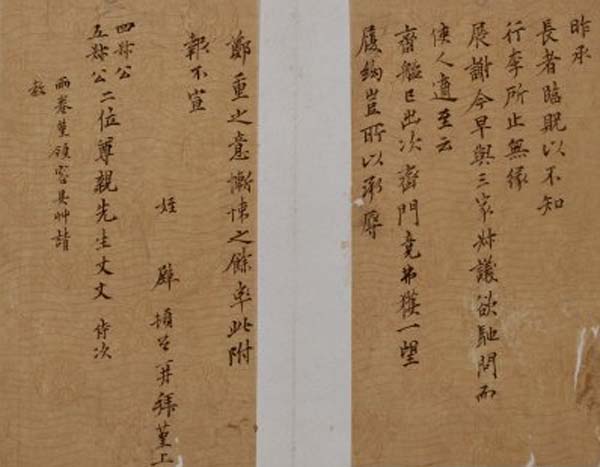 昨承
長者臨貺以不知
行李所止無緣
展謝今早與三家叔議欲馳問而
使人適至云
齋艦已出次齊門竟弗獲一望
履鉤豈所以承辱
鄭重之意慚悚之餘率此附
報不宣
姪 辟 頓首再拜堇上
四叔公
五叔公二位尊親先生丈丈 侍次
兩卷堇領容具呻請
教